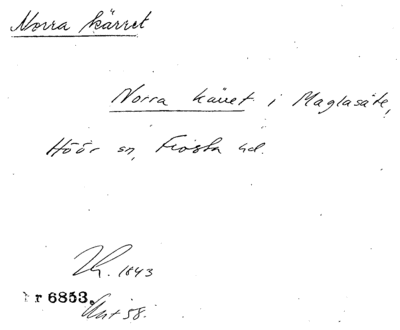 Norra kärret
Norra kärret i Maglasäte,
Höör sn, Frosta hd.
1843
r 6853.
58.